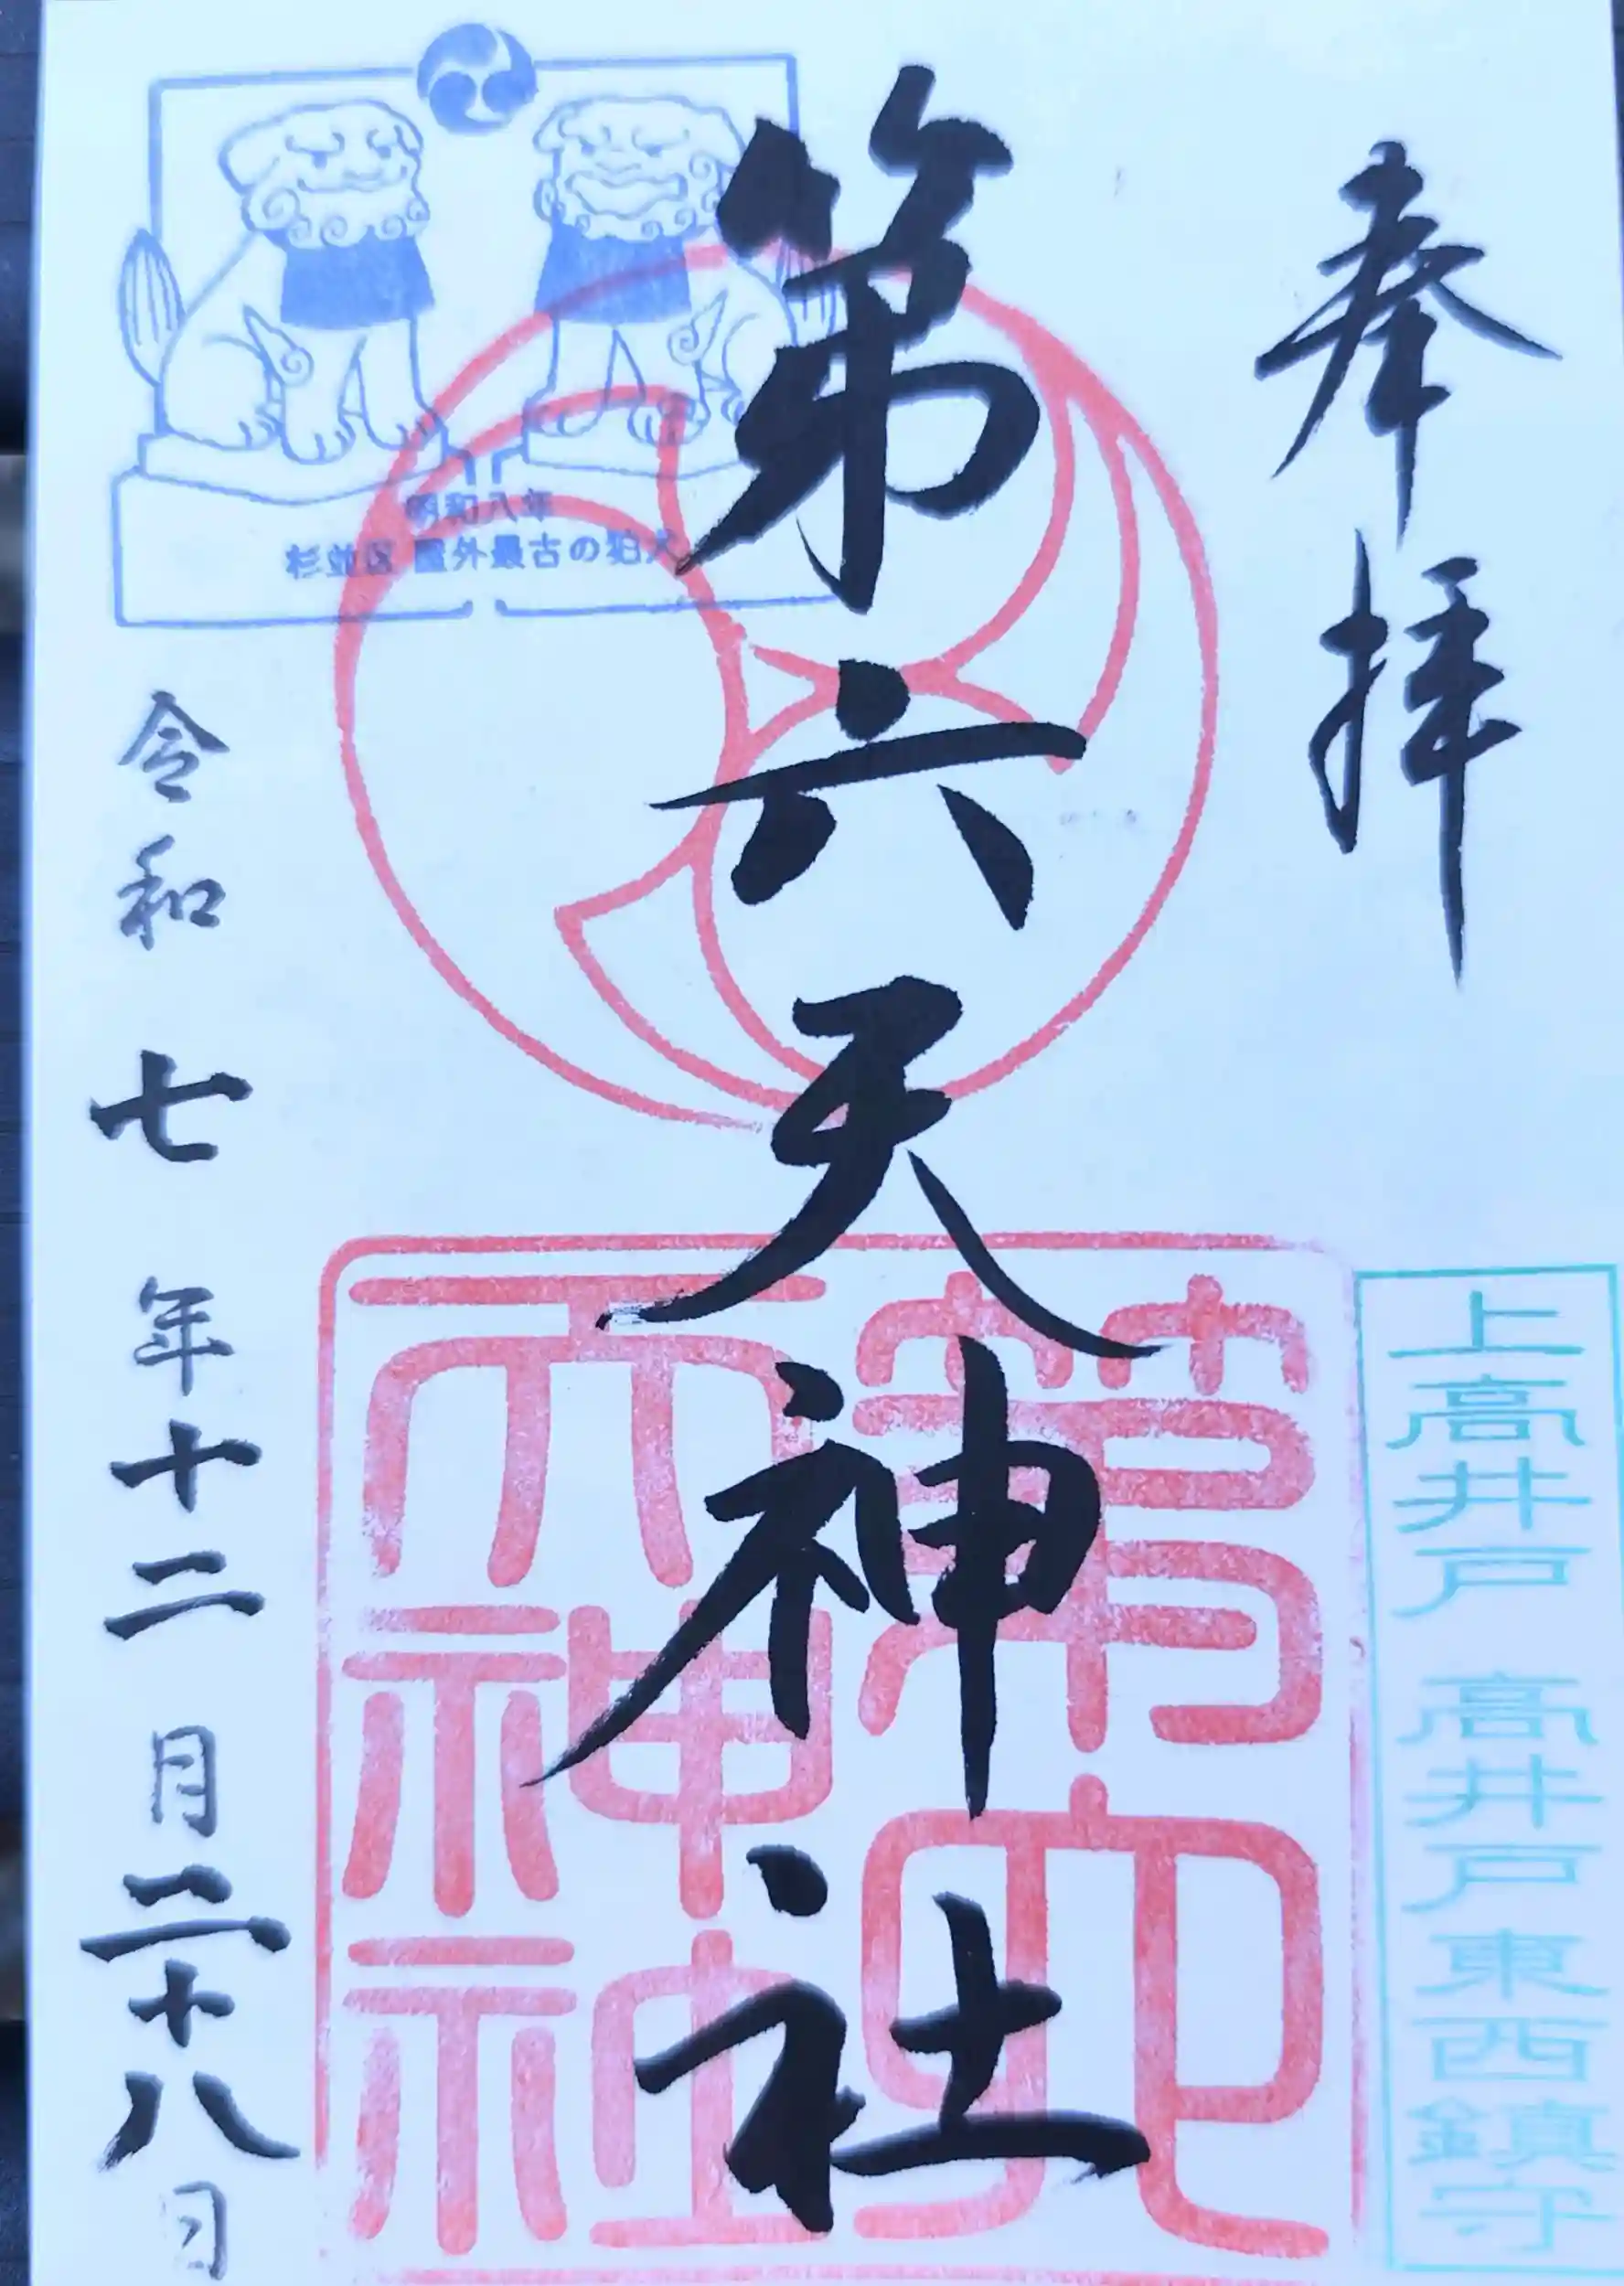 奉拝
上高井戸 高井戸東西鎮守
第六天神社
第六
天神社
明和八年
杉並区 屋外最古の狛犬
令和七年十二月二十八日